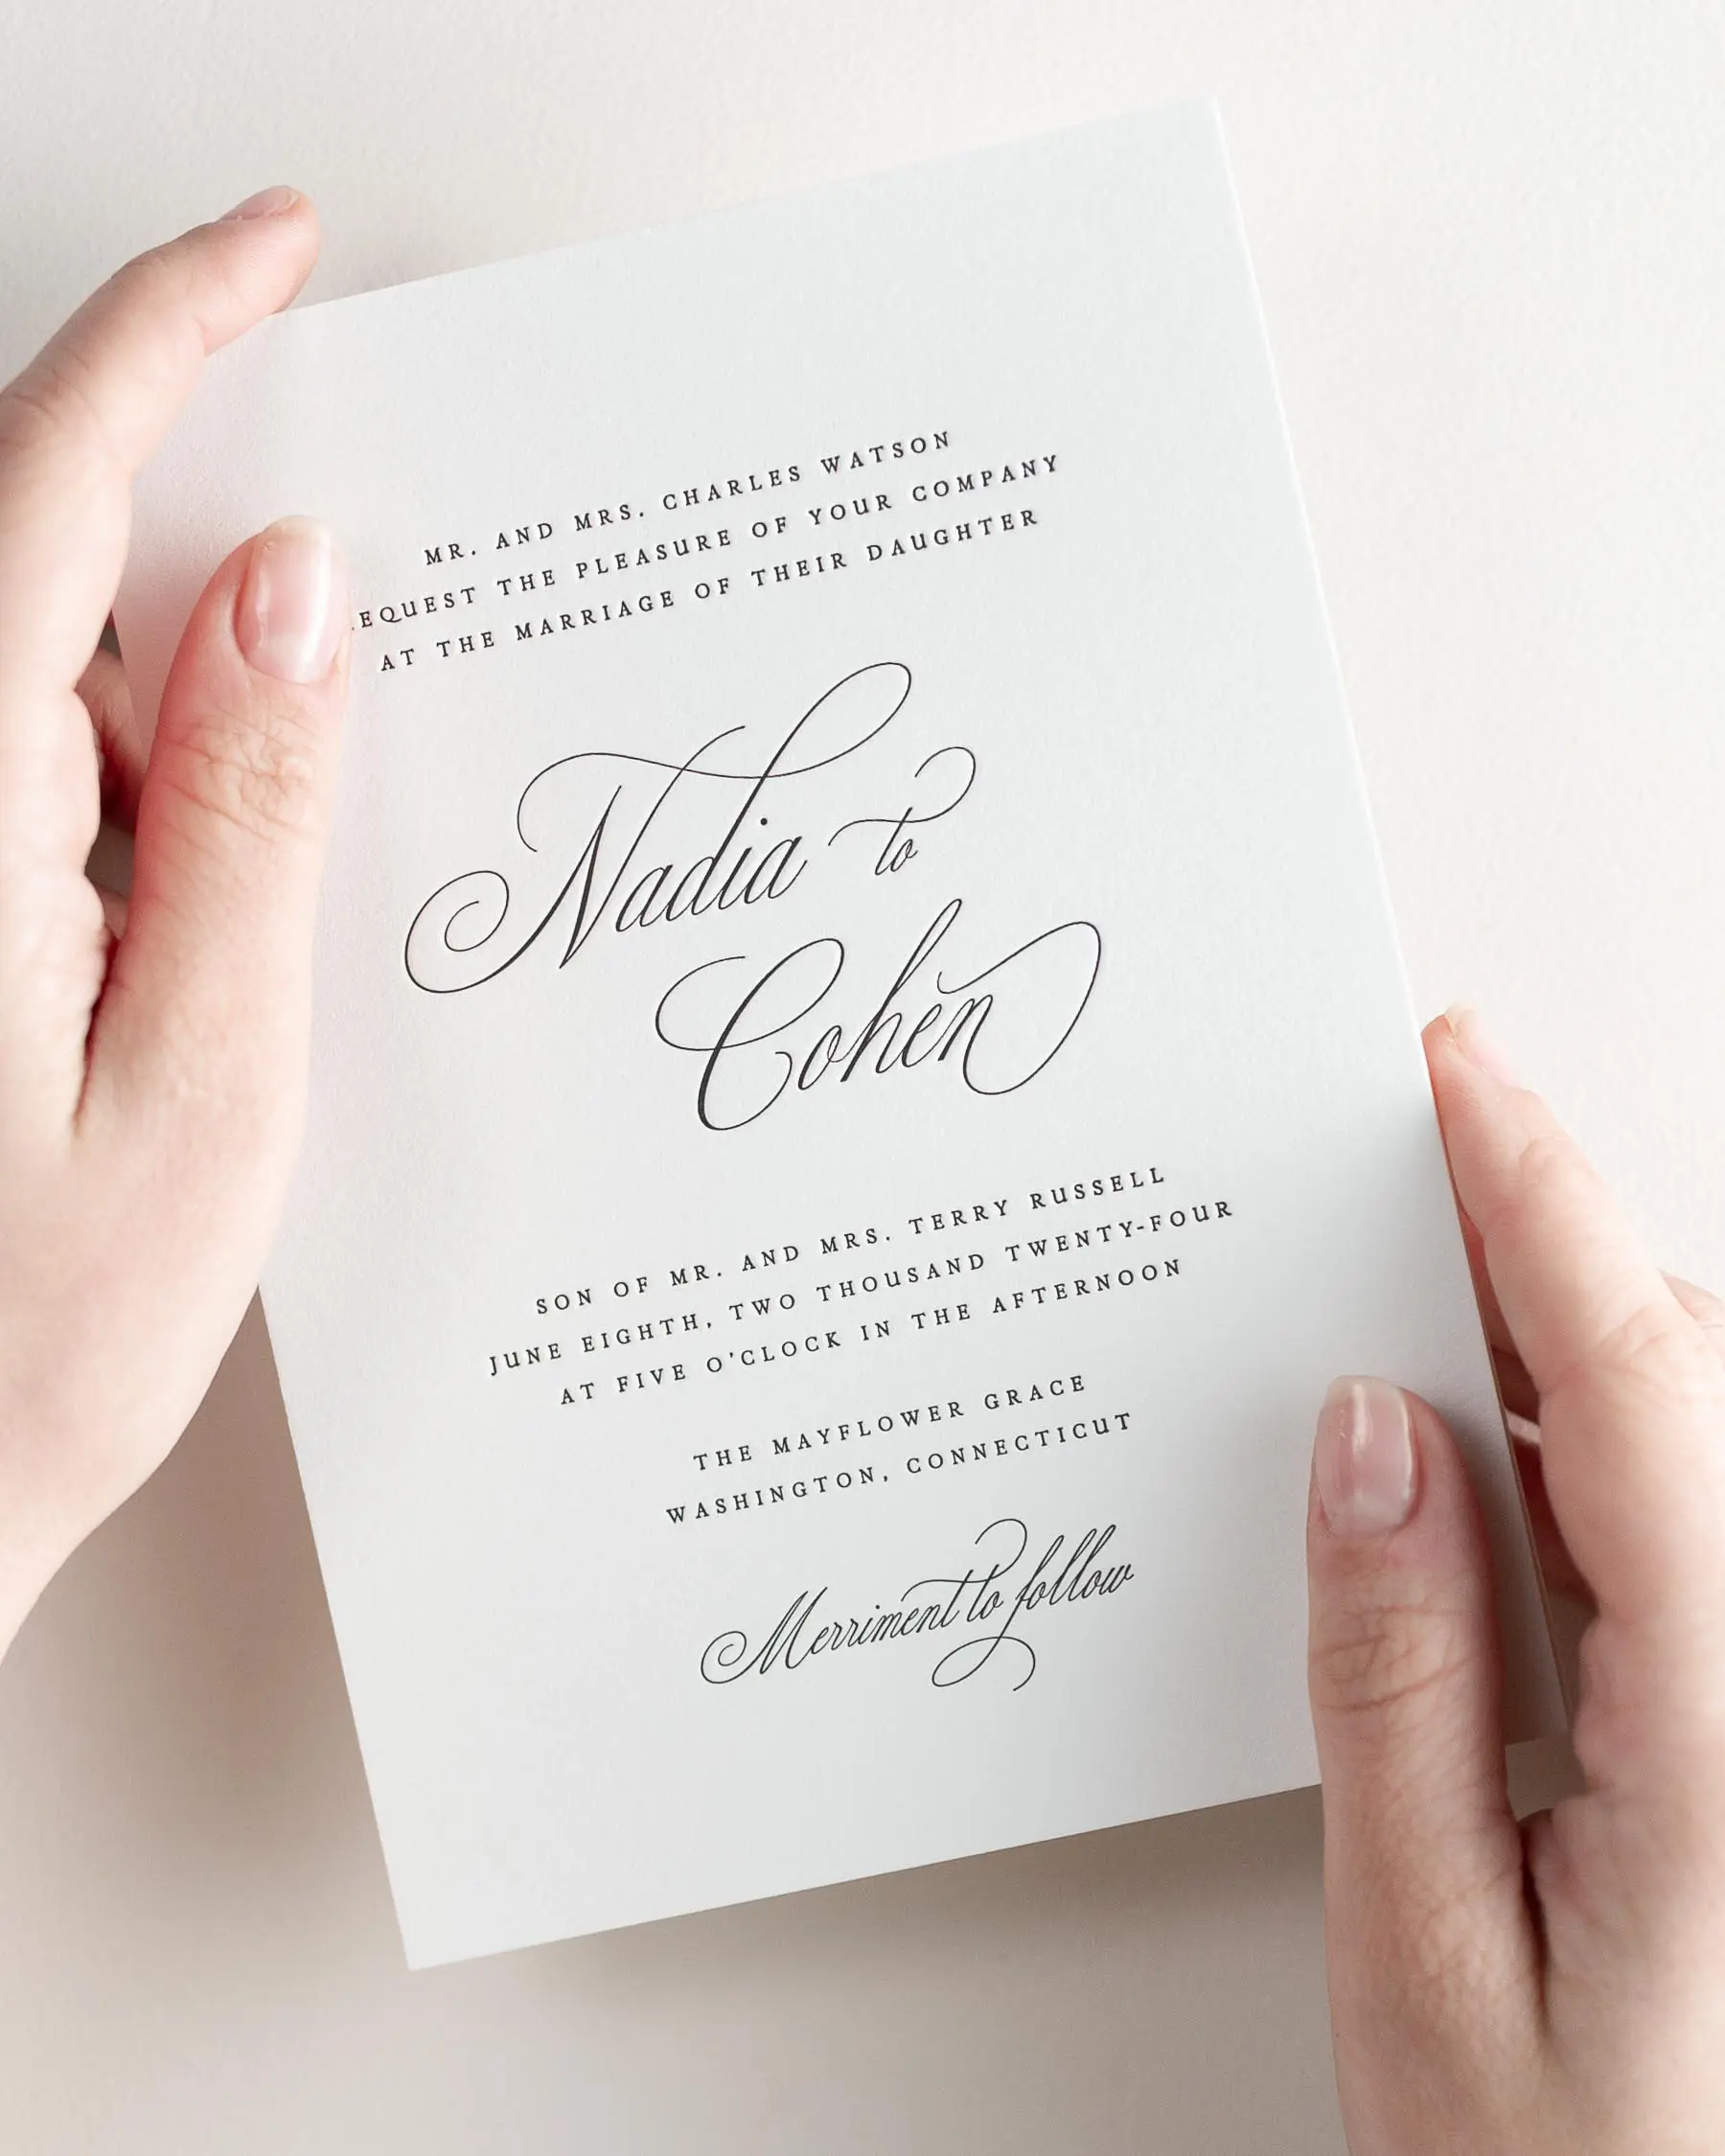 MR. AND MRS. CHARLES WATSON
REQUEST THE PLEASURE OF YOUR COMPANY
AT THE MARRIAGE OF THEIR DAUGHTER
Nadia to
Cohen
SON OF MR. AND MRS. TERRY RUSSELL
JUNE EIGHTH, TWO THOUSAND TWENTY-FOUR
AT FIVE O'CLOCK IN THE AFTERNOON
THE MAYFLOWER GRACE
WASHINGTON, CONNECTICUT
Merriment to follow